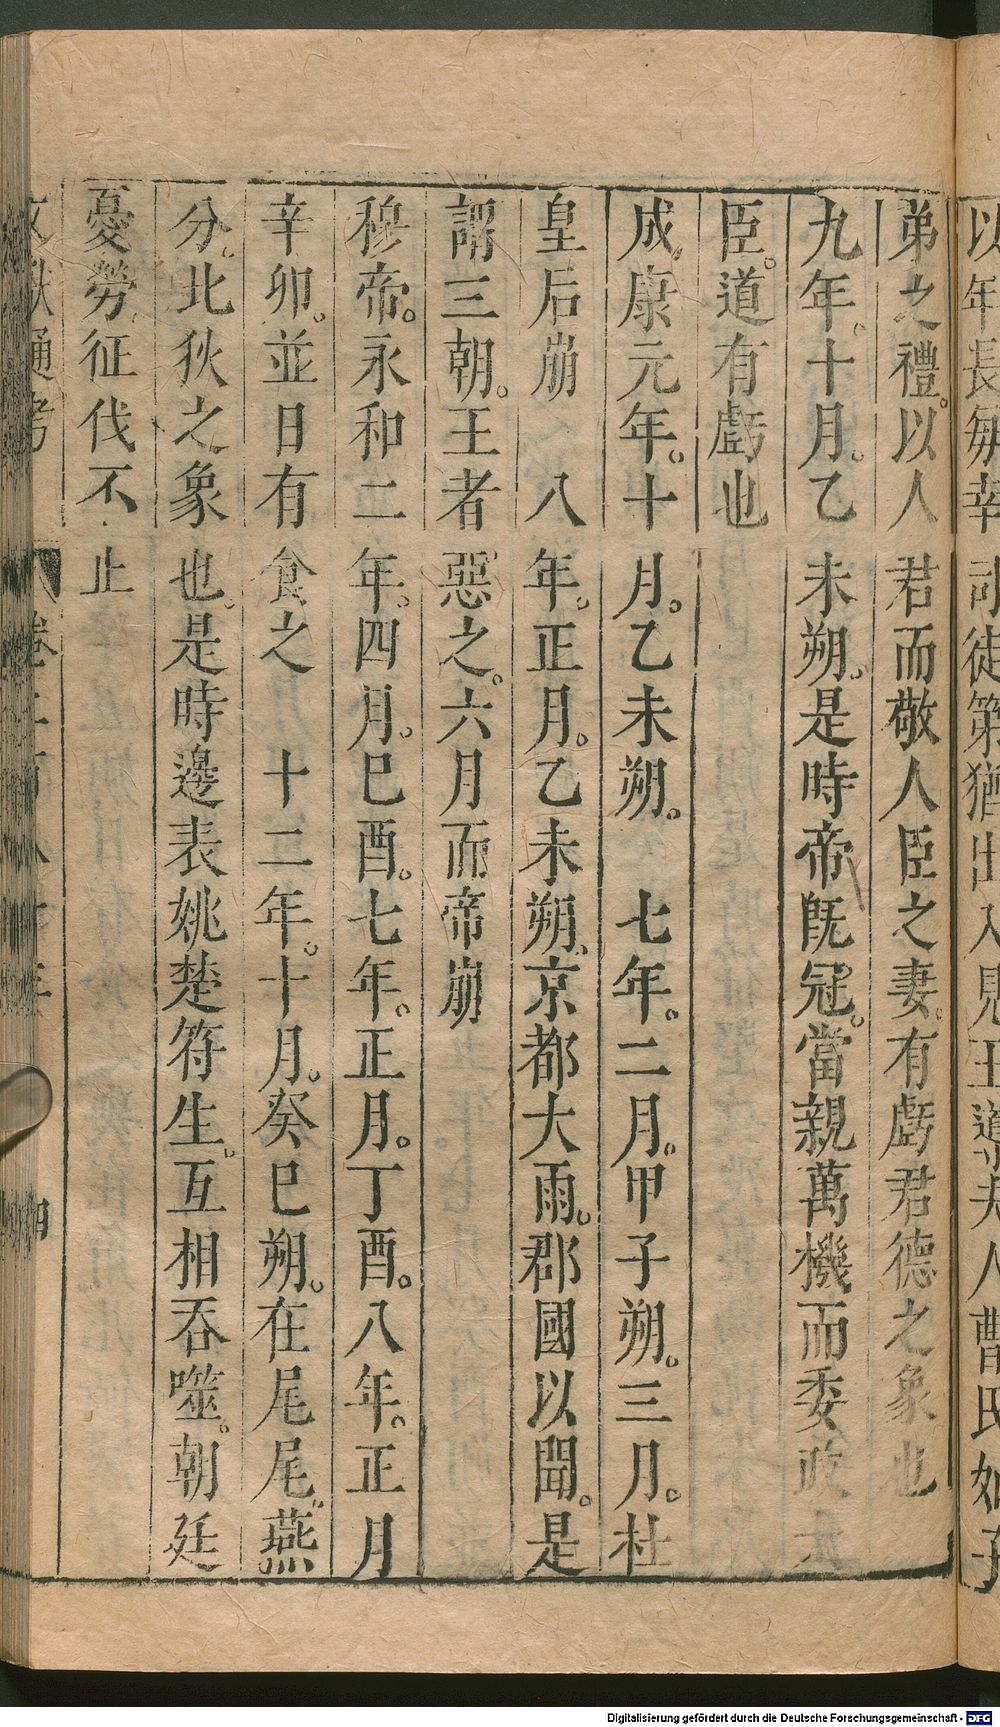 以年長每幸司徒第猶出入見王導夫人曹氏如子
弟之禮。以人君而敬人臣之妻。有虧君德之象也
九年。十月。乙未朔。是時帝旣冠。當親萬機而委政大
臣。道有虧也
成康元年。十月。乙未朔。　七年。二月。甲子朔。三月。杜
皇后崩　八年。正月。乙未朔。京都大雨。郡國以聞。是
謂三朝。王者惡之。六月而帝崩
穆帝。永和二年。四月。巳酉。七年。正月。丁酉。八年。正月
辛卯。並日有食之　十二年。十月。癸巳朔。在尾尾。燕
分。北狄之象也。是時邊表姚楚符生。互相吞噬。朝廷
憂勞。征伐不止
文獻通考　卷二百八十三　四
Digitalisierung gefördert durch die Deutsche Forschungsgemeinschaft - DFG